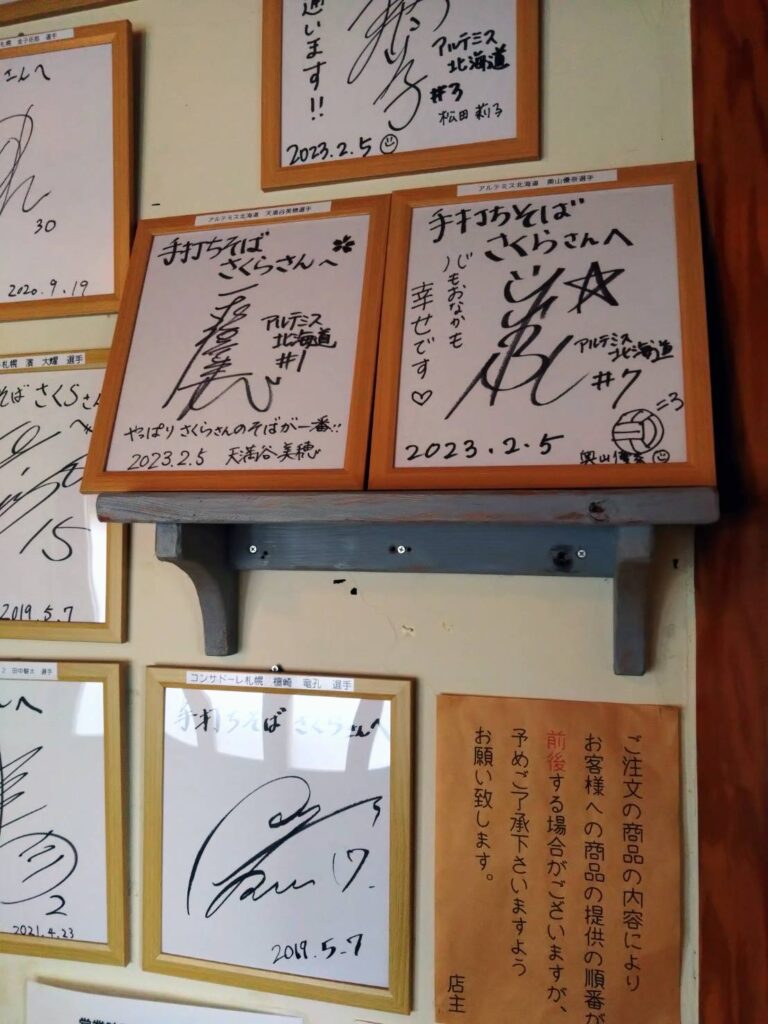 通います!!
アルテミス
北海道
#3
松田 莉子
2023.2.5
札幌 金子拓郎 選手
さんへ
30
2020.9.19
アルテミス北海道 天満谷美穂選手
手打ちそば
さくらさんへ
アルテミス
北海道
#1
やっぱり さくらさんのそばが一番!!
2023.2.5 天満谷 美穂
アルテミス北海道 奥山優奈選手
手打ちそば
さくらさんへ
心もおなかも
幸せです♡
アルテミス
北海道
#7
2023.2.5
奥山優奈
札幌 濱 大耀 選手
そば さくらさん
へ
15
2019.5.7
2 田中 選手
んへ
2
2021.4.23
コンサドーレ札幌 檀崎 竜孔 選手
手打ちそば さくらさんへ
17.
2019.5.7
ご注文の商品の内容により
お客様への商品の提供の順番が
前後する場合がございますが、
予めご了承下さいますよう
お願い致します。
店主